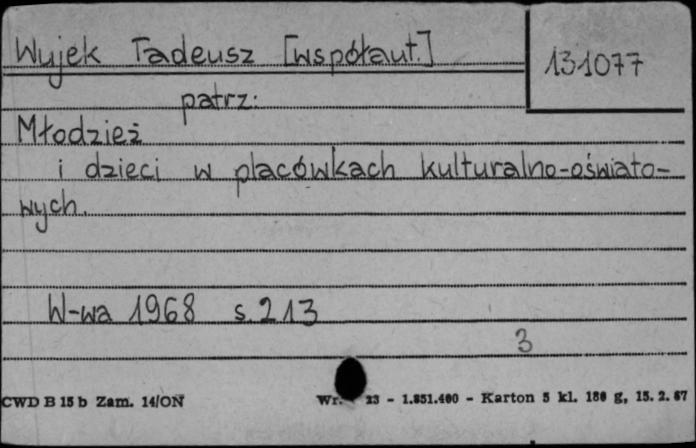 Wujek Tadeusz [współaut.]
131077
patrz:
Młodzież
i dzieci w placówkach kulturalno-oświato-
wych.
W-wa 1968 s. 213
3
CWD B 15 b Zam. 14/ON
Wr. 23 - 1.851.400 - Karton 5 kl. 180 g, 15. 2. 67